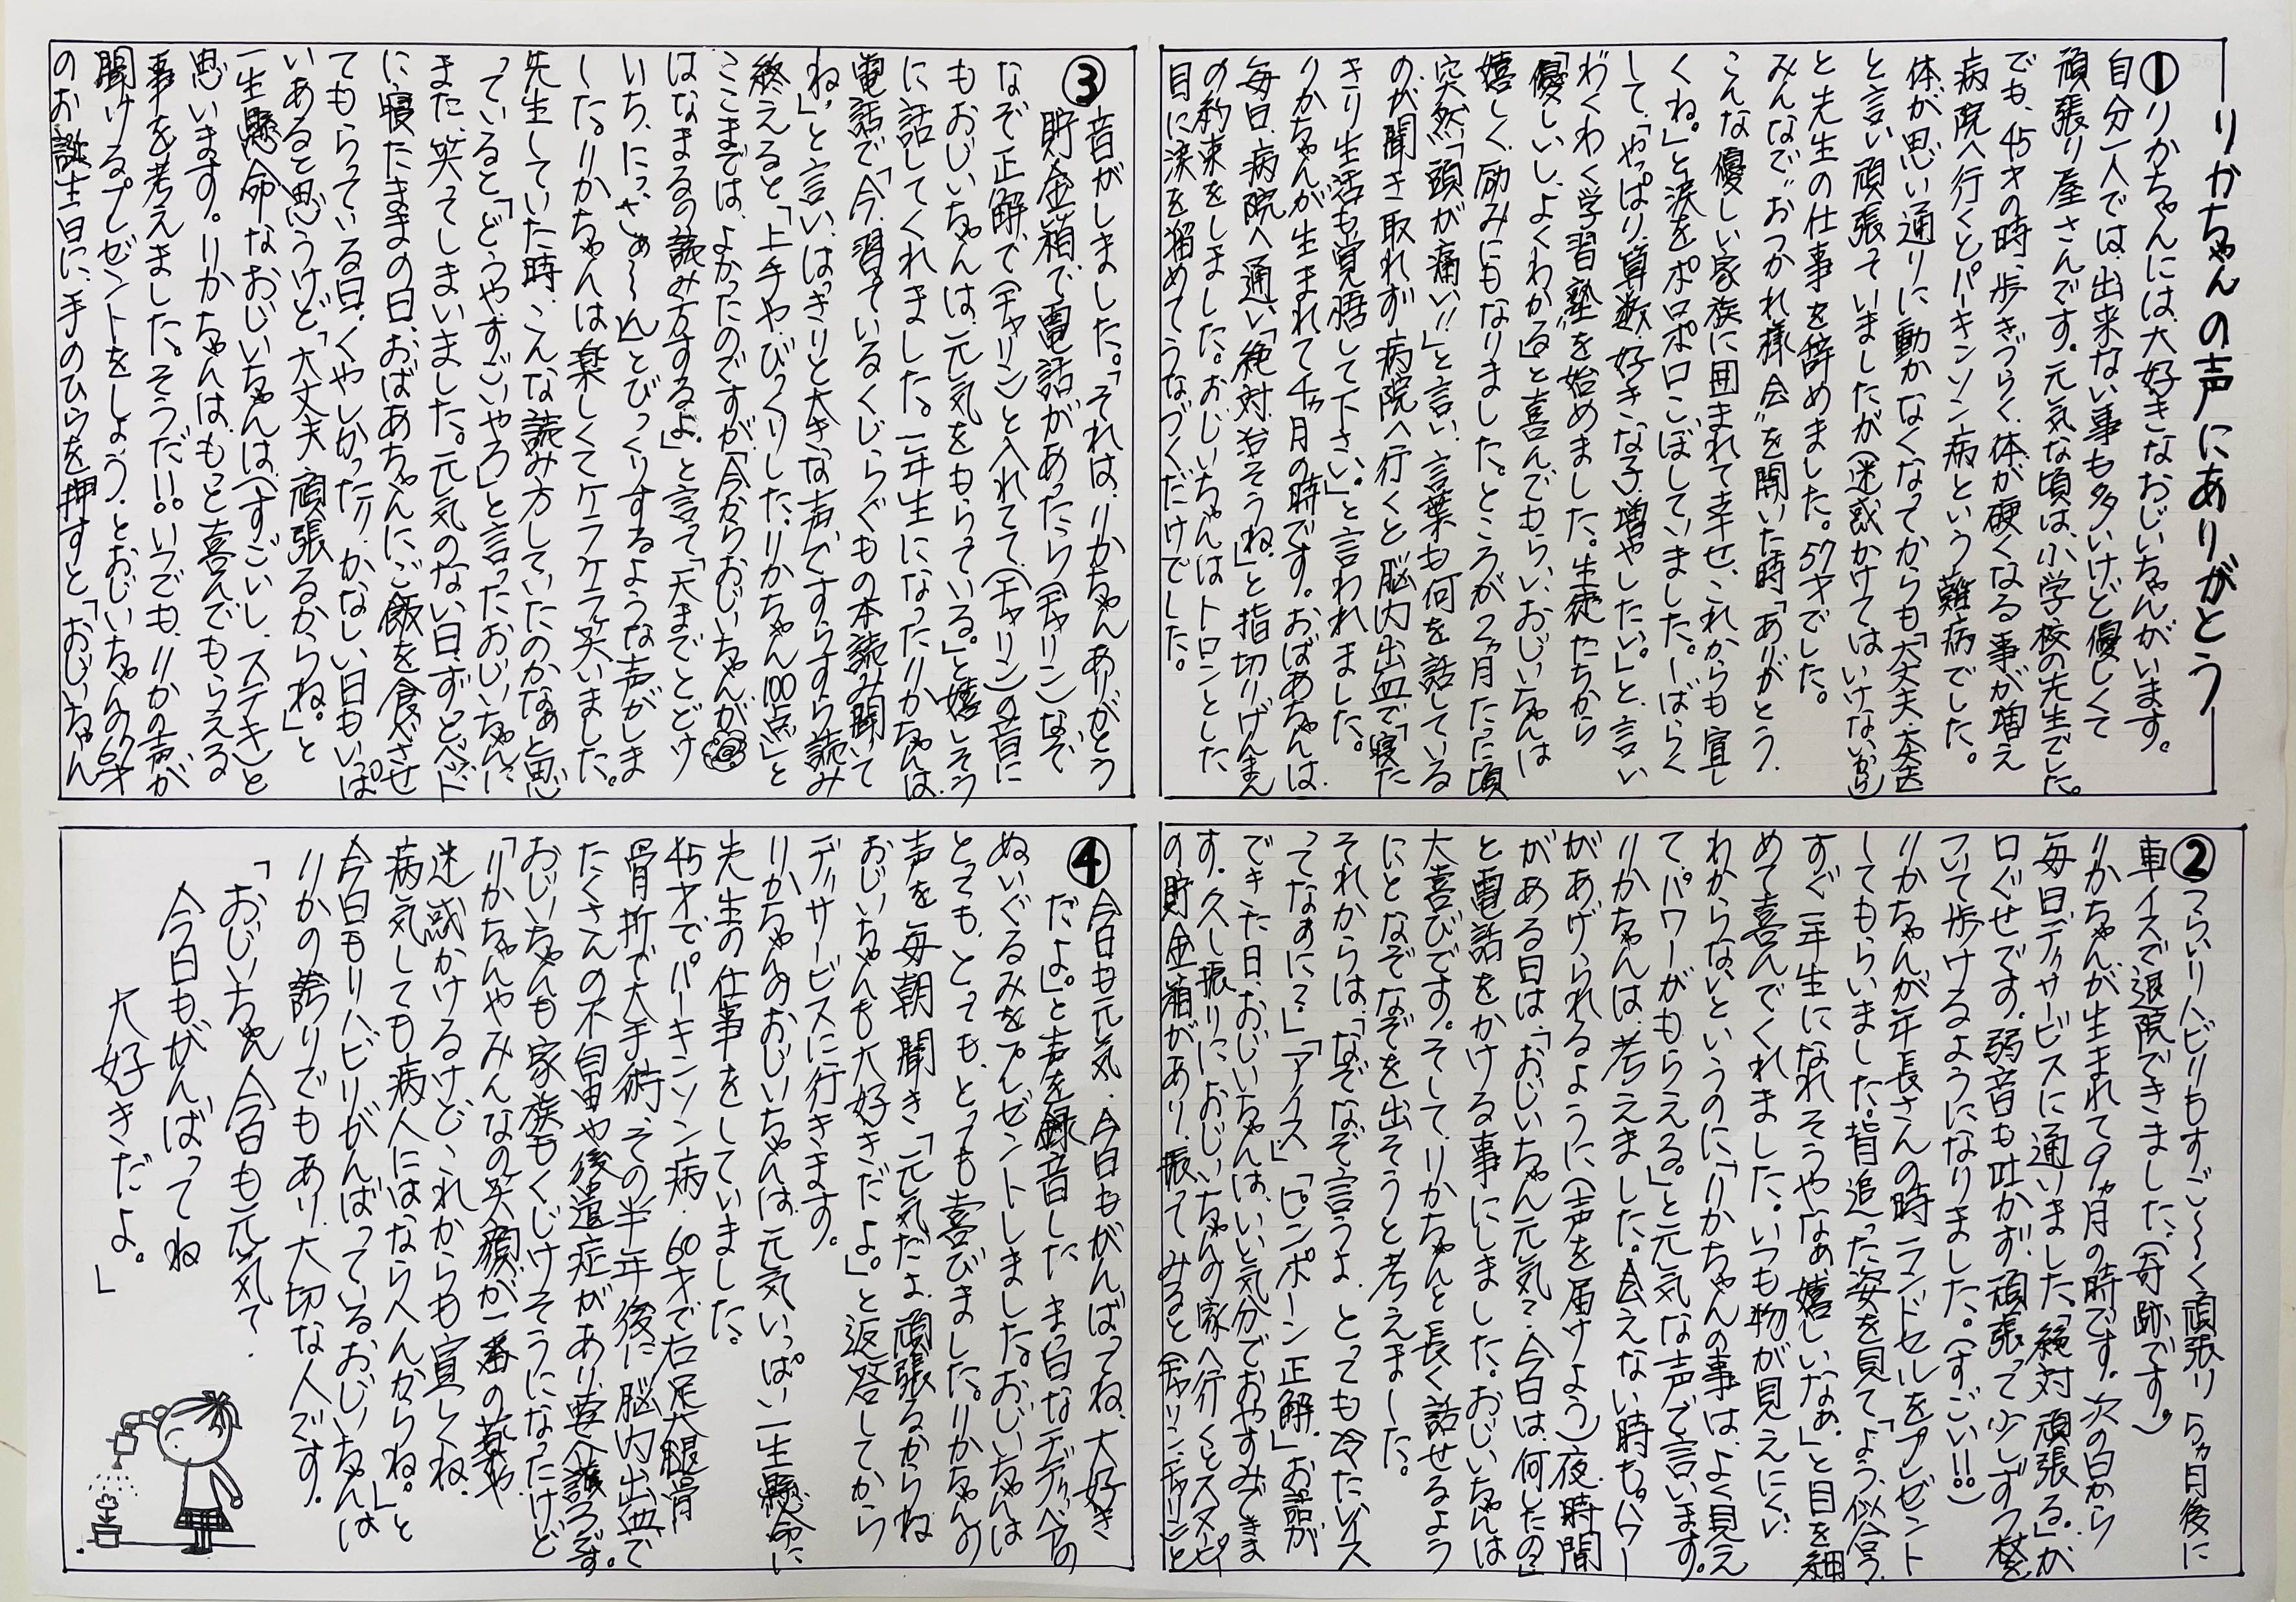 ―りかちゃんの声にありがとう―
①りかちゃんには、大好きなおじいちゃんがいます。
自分一人では、出来ない事も多いけど優しくて
頑張り屋さんです。元気な頃は、小学校の先生でした。
でも、45才の時、歩きづらく、体が硬くなる事が増え
病院へ行くとパーキンソン病という難病でした。
体が思い通りに動かなくなってからも「大丈夫、大丈夫」
と言い頑張っていましたが(迷惑かけてはいけないから)
と先生の仕事を辞めました。57才でした。
みんなで“おつかれ様会”を開いた時「ありがとう。
こんな優しい家族に囲まれて幸せ、これからも宜し
くね。」と涙をポロポロこぼしていました。しばらく
して、「やっぱり、算数、好きな子増やしたい。」と、言い
わくわく学習塾”を始めました。生徒たちから
「優しいし、よくわかる」と喜んでもらい、おじいちゃんは
嬉しく、励みにもなりました。ところが2ヵ月たった頃
突然、「頭が痛い!!」と言い、言葉も何を話している
のか聞き取れず、病院へ行くと脳内出血で「寝た
きり生活も覚悟して下さい。」と言われました。
りかちゃんが生まれて4ヵ月の時です。おばあちゃんは、
毎日、病院へ通い、「絶対、治そうね。」と指切りげんまん
の約束をしました。おじいちゃんはトロンとした
目に涙を溜めてうなづくだけでした。
②つらいリハビリもすご～く頑張り5ヵ月後に
車イスで退院できました。(奇跡です。)
りかちゃんが生まれて9ヵ月の時です。次の日から
毎日デイサービスに通いました。「絶対頑張る。」が
口ぐせです。弱音も吐かず、頑張って少しずつ杖を
ついて歩けるようになりました。(すごい!!)
りかちゃんが年長さんの時ランドセルをプレゼント
してもらいました。背追った姿を見て「よう、似合う、
すぐ一年生になれそうやなぁ、嬉しいなぁ。」と目を細
めて喜んでくれました。いつも物が見えにくい、
わからないというのに、「りかちゃんの事は、よく見え
て、パワーがもらえる。」と元気な声で言います。
りかちゃんは、考えました。会えない時も、パワー
があげられるように(声を届けよう)夜、時間
がある日は、「おじいちゃん元気？今日は、何したの？」
と電話をかける事にしました。おじいちゃんは
大喜びです。そして、りかちゃんと長く話せるよう
にとなぞなぞを出そうと考えました。
それからは、「なぞなぞ言うよ、とっても冷たいイス
ってなぁに？」「アイス」「ピンポーン正解。」お話が
できた日、おじいちゃんは、いい気分でおやすみできま
す。久し振りにおじいちゃんの家へ行くとスヌーピー
の貯金箱があり、振ってみると(チャリン、チャリン)と
③音がしました。「それは、りかちゃんありがとう
貯金箱で電話があったら(チャリン)なぞ
なぞ正解で(チャリン)と入れてて、(チャリン)の音に
もおじいちゃんは、元気をもらっている。」と嬉しそう
に話してくれました。一年生になったりかちゃんは、
電話で「今、習っているくじらぐもの本読み聞いて
ね。」と言い、はっきりと大きな声ですらすら読み
終えると「上手や、びっくりした。りかちゃん100点」と
ここまでは、よかったのですが、「今からおじいちゃんが
はなまるの読み方するよ。」と言って「天までとどけ
いち、にっ、さぁ～ん」とびっくりするような声がしま
した。りかちゃんは楽しくてケラケラ笑いました。
先生していた時、こんな読み方していたのかなぁと思
っていると「どうや、すごいやろ」と言ったおじいちゃんに
また、笑ってしまいました。元気のない日、ずっとベッド
に寝たままの日、おばあちゃんにご飯を食べさせ
てもらっている日、くやしかったり、かなしい日もいっぱ
いあると思うけど、「大丈夫、頑張るからね。」と
一生懸命なおじいちゃんは、(すごいし、ステキ)と
思います。りかちゃんは、もっと喜んでもらえる
事を考えました。そうだ!!。いつでも、りかの声が
聞けるプレゼントをしよう。とおじいちゃんの67才
のお誕生日に、手のひらを押すと、「おじいちゃん
④今日も元気、今日もがんばってね、大好き
だよ。」と声を録音した、ま白なテディベアの
ぬいぐるみをプレゼントしました。おじいちゃんは
とっても、とっても、とっても喜びました。りかちゃんの
声を毎朝、聞き「元気だよ、頑張るからね
おじいちゃんも大好きだよ。」と返答してから
デイサービスに行きます。
りかちゃんのおじいちゃんは、元気いっぱい一生懸命に
先生の仕事をしていました。
45才でパーキンソン病、60才で右足大腿骨
骨折で大手術、その半年後に脳内出血で
たくさんの不自由や後遺症があり、要介護5です。
おじいちゃんも家族もくじけそうになったけど
「りかちゃんやみんなの笑顔が一番の薬や
迷惑かけるけど、これからも宜しくね、
病気しても病人にはならへんからね。」と
今日もリハビリがんばっているおじいちゃんは
りかの誇りでもあり、大切な人です。
「おじいちゃん今日も元気で、
今日もがんばってね
大好きだよ。」